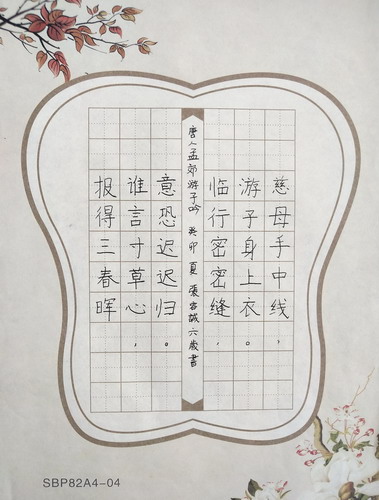 慈母手中线，
游子身上衣。
临行密密缝，
唐人孟郊游子吟 癸卯夏 張容誠六歲書
意恐迟迟归。
谁言寸草心，
报得三春晖
SBP82A4-04